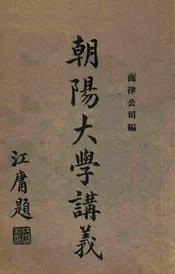 商律公司編
朝陽大學講義
江庸題